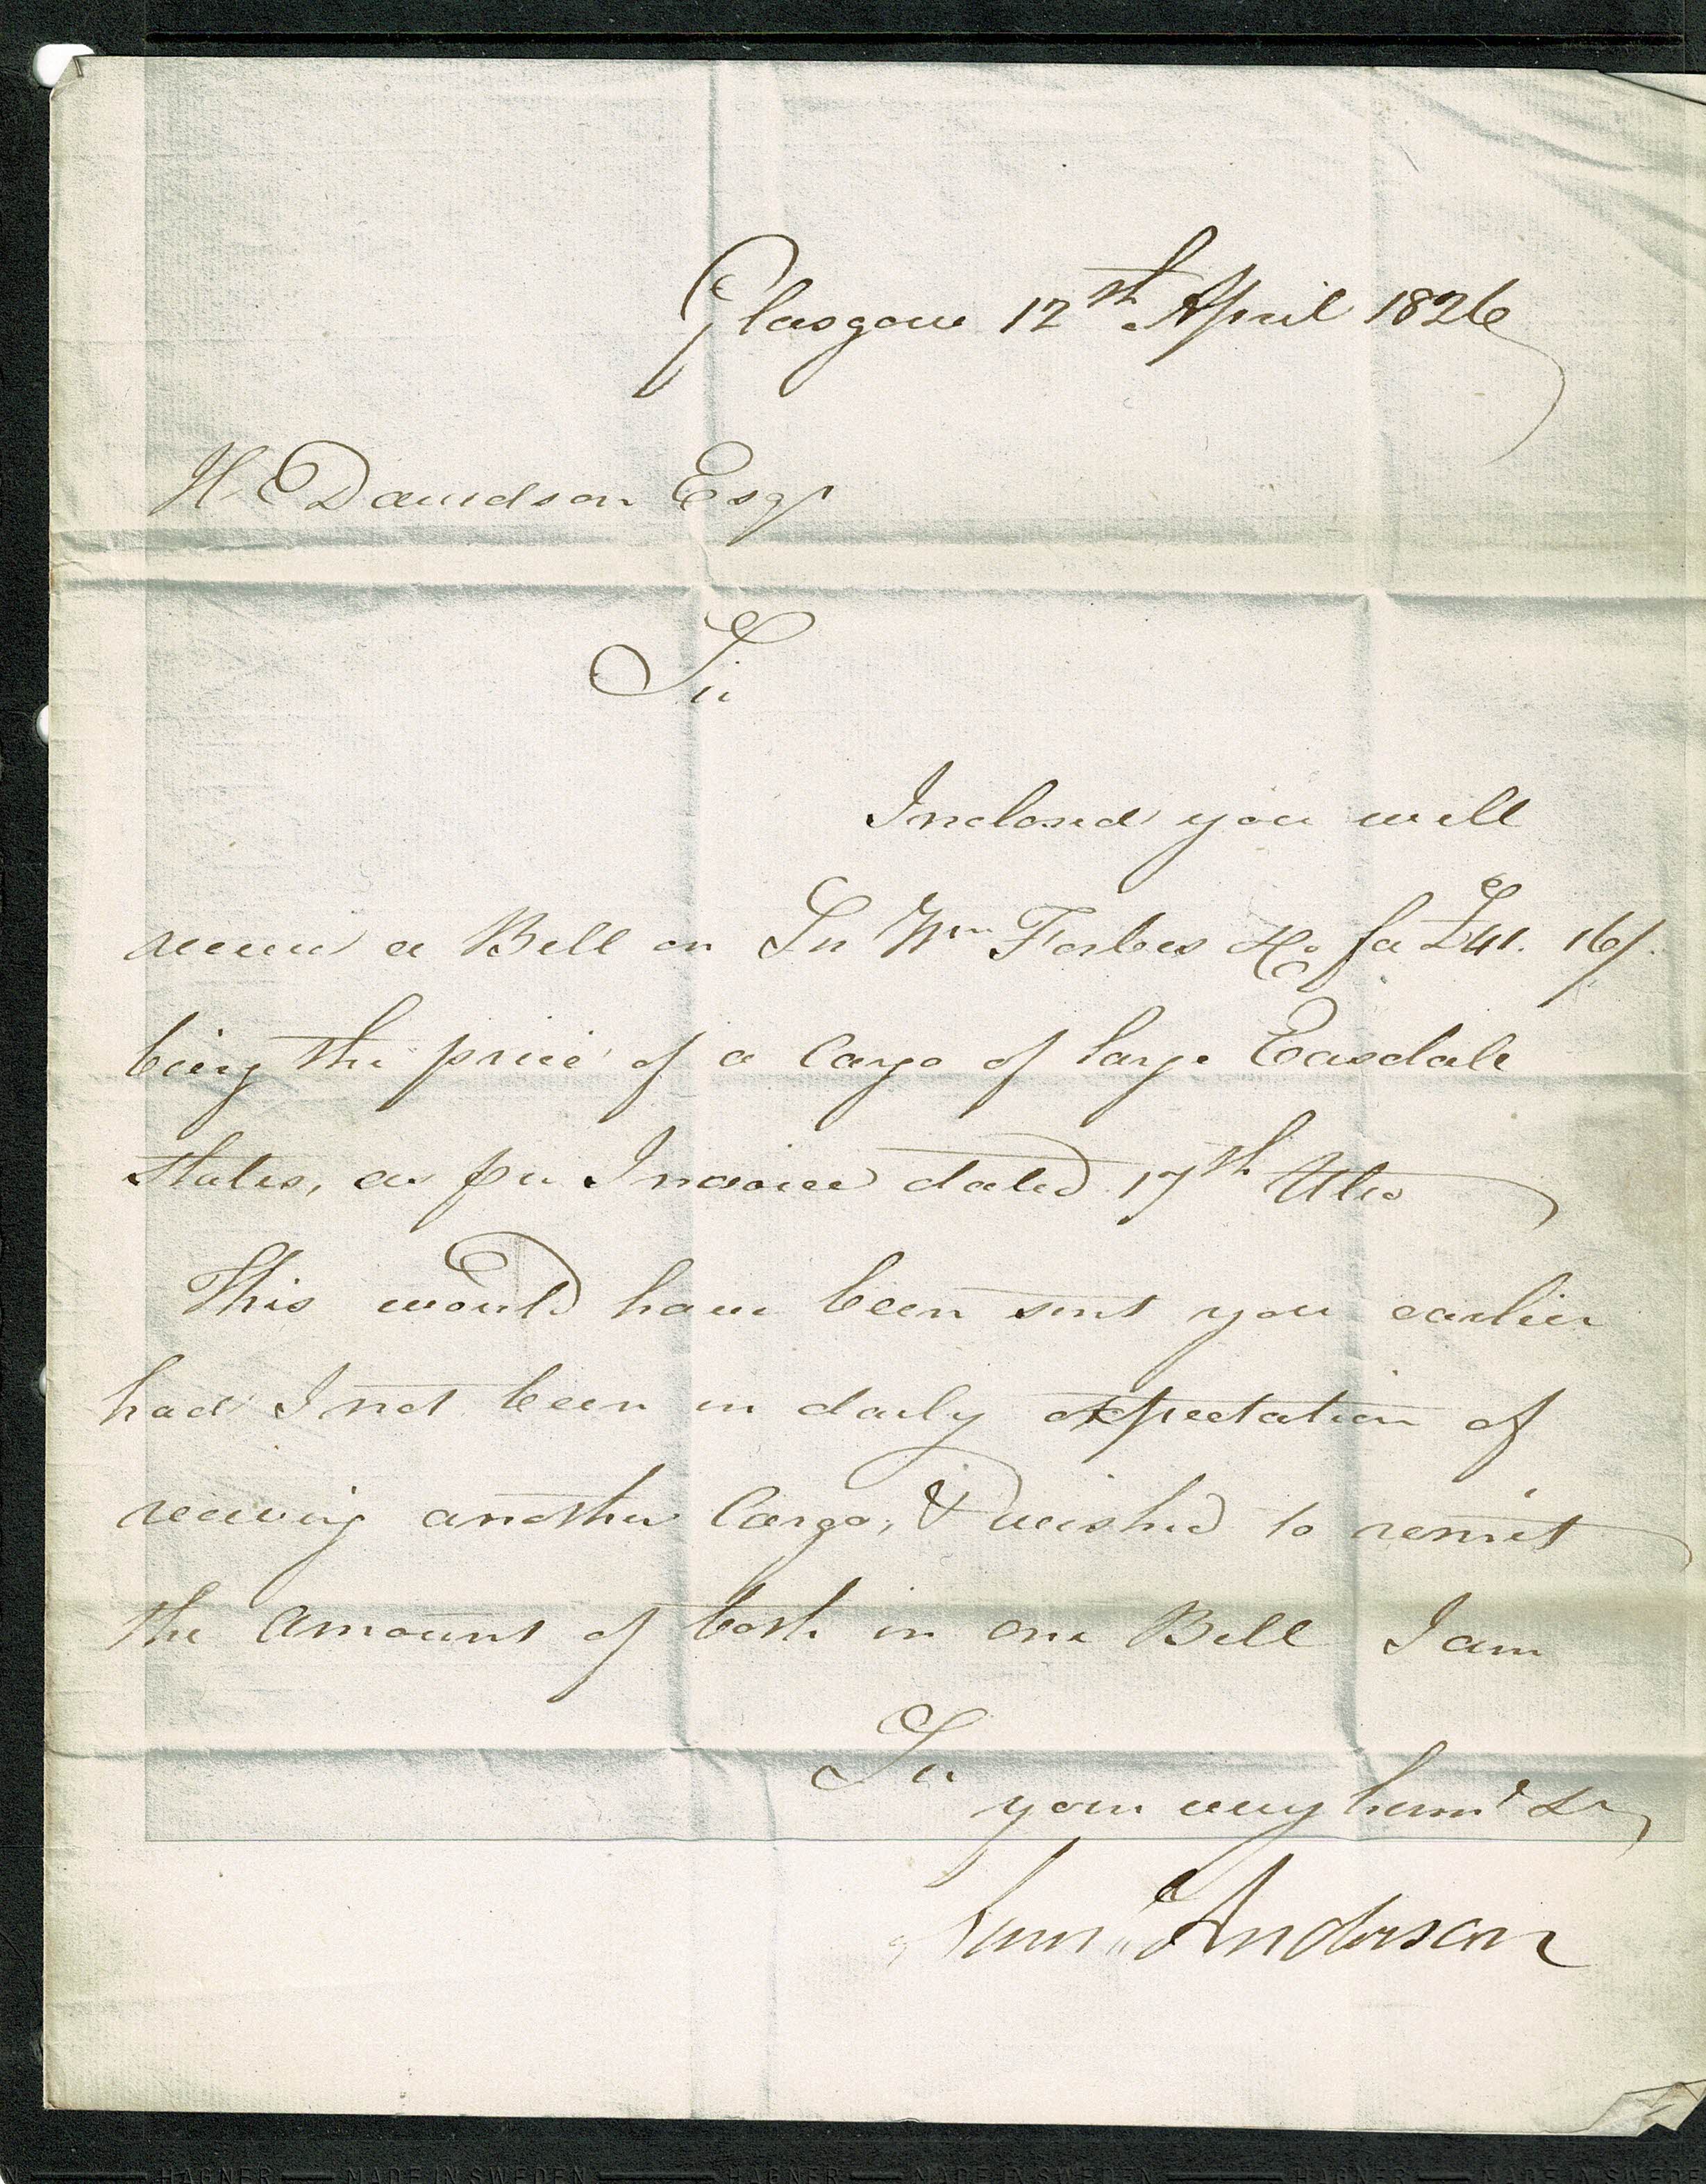 Glasgow 12th April 1826
H. Davidson Esqr
Sir
Inclosed you will
receive a Bill on Sir Wm Forbes & Co for £41. 16/.
being the price of a Cargo of large Easdale
slates, as per Invoice dated 17th Ulto
This would have been sent you earlier
had I not been in daily expectation of
receiving another Cargo, & wished to remit
the amount of both in one Bill I am
Sir
your very huml Sr
Anderson
HAGNER MADE IN SWEDEN HAGNER MADE IN SWEDEN HAGNER